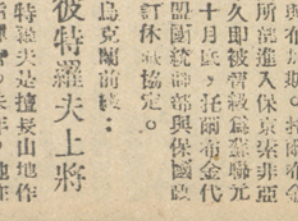 所部進入保京索非亞
久即被晉級為蘇聯元
十月底，托爾布金代
盟國統帥部與保國政
訂休戰協定。
烏克蘭前線：
彼特羅夫上將
特羅夫是擅長山地作